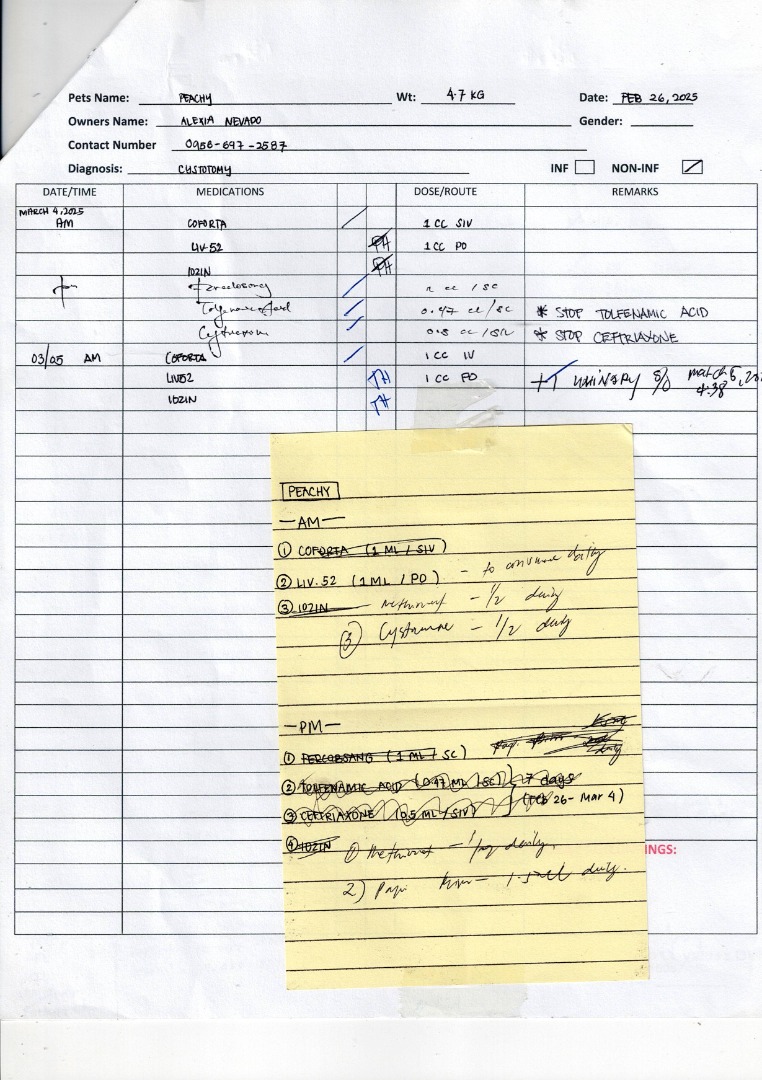 Pets Name: PEACHY Wt: 4.7 KG Date: FEB 26, 2025
Owners Name: ALEXIA NEVADO Gender:
Contact Number 0956-697-2587
Diagnosis: CYSTOTOMY INF NON-INF
DATE/TIME MEDICATIONS DOSE/ROUTE REMARKS
MARCH 4, 2025
AM COFORTA 1 CC SIV
LIV-52 PH 1 CC PO
IOZIN PH
cc / SC
Tolfenamic Acid 0.47 cc/SC * STOP TOLFENAMIC ACID
0.5 cc /SIV * STOP CEFTRIAXONE
03/05 AM COFORTA 1 CC IV
LIV52 TH 1 CC PO URINARY S/O march 5, 4:38
IOZIN TH
PEACHY
—AM—
① COFORTA (1 ML / SIV)
② LIV. 52 (1 ML / PO) - to continue daily
③ IOZIN - 1/2 daily
③ - 1/2 daily
—PM—
① FERCOBSANG (1 ML / SC)
② TOLFENAMIC ACID (0.47 ML / SC) 7 days
③ CEFTRIAXONE (0.5 ML / SIV) (FEB 26 - Mar 4)
④ IOZIN ① daily.
2) daily.
INGS: